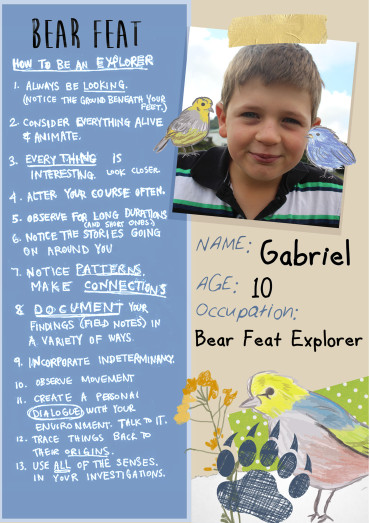 BEAR FEAT
HOW TO BE AN EXPLORER
1. ALWAYS BE LOOKING.
(NOTICE THE GROUND BENEATH YOUR
FEET.)
2. CONSIDER EVERYTHING ALIVE
& ANIMATE.
3. EVERYTHING IS
INTERESTING. LOOK CLOSER
4. ALTER YOUR COURSE OFTEN.
5. OBSERVE FOR LONG DURATIONS
(AND SHORT ONES)
6. NOTICE THE STORIES GOING
ON AROUND YOU
7. NOTICE PATTERNS.
MAKE CONNECTIONS
8. DOCUMENT YOUR
FINDINGS (FIELD NOTES) IN
A VARIETY OF WAYS.
9. INCORPORATE INDETERMINANCY.
10. OBSERVE MOVEMENT
11. CREATE A PERSONAL
DIALOGUE WITH YOUR
ENVIRONMENT. TALK TO IT.
12. TRACE THINGS BACK TO
THEIR ORIGINS.
13. USE ALL OF THE SENSES.
IN YOUR INVESTIGATIONS.
NAME: Gabriel
AGE: 10
Occupation:
Bear Feat Explorer